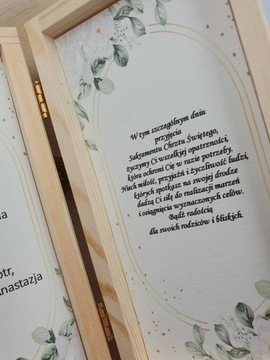 W tym szczególnym dniu
przyjęcia
Sakramentu Chrztu Świętego,
życzymy Ci wszelkiej opatrzności,
która ochroni Cię w razie potrzeby.
Niech miłość, przyjaźń i życzliwość ludzi,
których spotkasz na swojej drodze
dadzą Ci siłę do realizacji marzeń
i osiągnięcia wyznaczonych celów.
Bądź radością
dla swoich rodziców i bliskich.